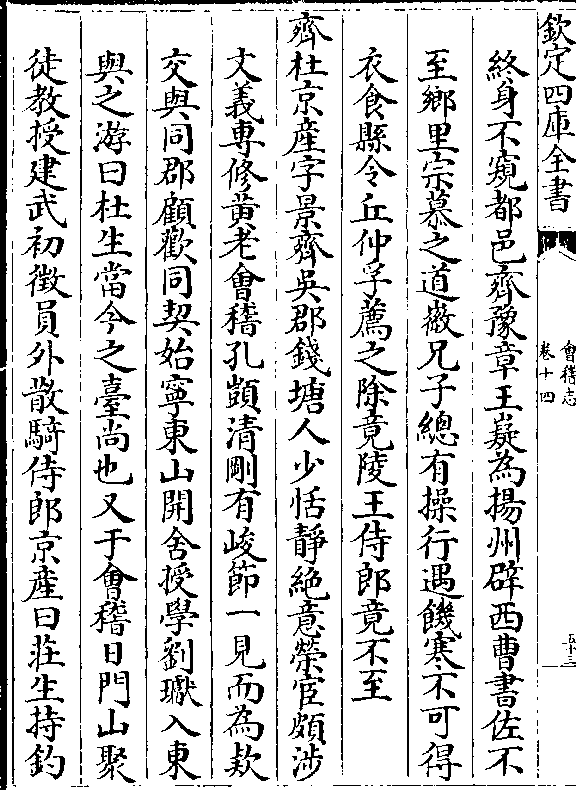 欽定四庫全書
會稽志
卷十四
五十三
終身不窺都邑齊豫章王嶷為揚州辟西曹書佐不
至鄉里宗慕之道徽兄子總有操行遇饑寒不可得
衣食縣令丘仲孚薦之除竟陵王侍郎竟不至
齊杜京產字景齊吳郡錢塘人少恬靜絕意榮宦頗涉
文義專修黃老會稽孔顗清剛有峻節一見而為欵
交與同郡顧歡同契始寧東山開舍授學劉瓛入東
與之游曰杜生當今之臺尚也又于會稽日門山聚
徒教授建武初徵員外散騎侍郎京產曰莊生持釣